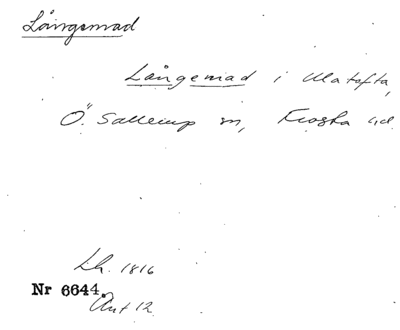 Långsmad
Långemad i Ulatofta,
Ö. Sallerup sn, Frosta hd.
Lh. 1816
Nr 6644.
Akt 12